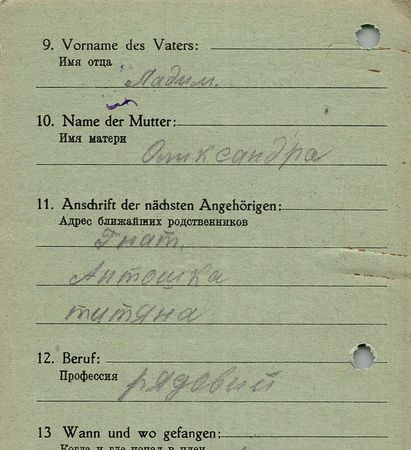 9. Vorname des Vaters:
Имя отца
Ладим.
10. Name der Mutter:
Имя матери
Олександра
11. Anschrift der nächsten Angehörigen:
Адрес ближайших родственников
Гнат.
Антошка
титяна
12. Beruf:
Профессия
рядовий
13 Wann und wo gefangen:
Когда и где попал в плен